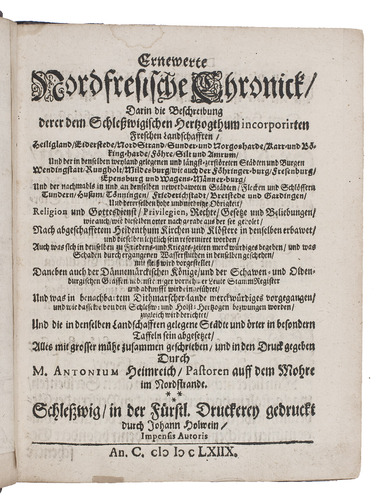 Ernewerte
Nordfresische Chronick/
Darin die Beschreibung
derer dem Schleßwigischen Hertzogthum incorporirten
Freschen Landschafften/
Heiligland/Eiderstede/NordStrand/Sunder-und Norgosharde/Karr-und Bö-
king-harde/Föhre/Silt und Amrum/
Und der in denselben weyland gelegenen und längst-zerstöreten Städten und Burgen
Wendingstatt/Rungholt/Mildesburg/wie auch der Föhringer-burg/Fresenburg/
Epensburg und Wagens-Männer-burg/
Und der nachmahls in und an denselben Städten/Flecken und Schlössern
Tundern/Husum/Tönningen/Friederichstadt/Bredstede und Gardingen/
Und deren selben hohe und niedrige Obrigkeit/
Religion und Gottesdienst/Privilegien, Rechte/Gesetze und Beliebungen/
wie auch/wie dieselben einer nach der
Nach abgeschafftem Heidenthum Kirchen und Klöstere in denselben erbawet/
und dieselben letztlich sein reformiret worden
Auch was sich in denselben zu Friedens-und Krieges-zeiten merckwürdiges begeben/und was
Schaden durch ergangenen Wasserfluthen in denselben geschehen/
mit fleiß wird vorgestellet/
Daneben auch der Dännemärckischen Könige/und der Schawen- und Olden-
burgischen Graffen StammRegister
und wird ein
Und was in benachbartem Dithmarscher-lande merckwürdiges vorgegangen/
und wie dasselbe von den Schleßw: und Holst: Hertzogen bezwungen worden/
zugleich wird berichtet/
Und die in denselben Landschafften gelegene Städte und örter in besondern
Taffeln sein abgesetzet/
Alles mit grosser mühe zusammen geschrieben/und in den Druck gegeben
Durch
M. ANTONIUM Heimreich/Pastoren auff dem Mohre
im Nordstrande.
***
Schleßwig/in der Fürstl. Druckerey gedruckt
durch Johann Holwein/
Impensis Autoris
An. C. cIɔ Iɔ c LXIIX.